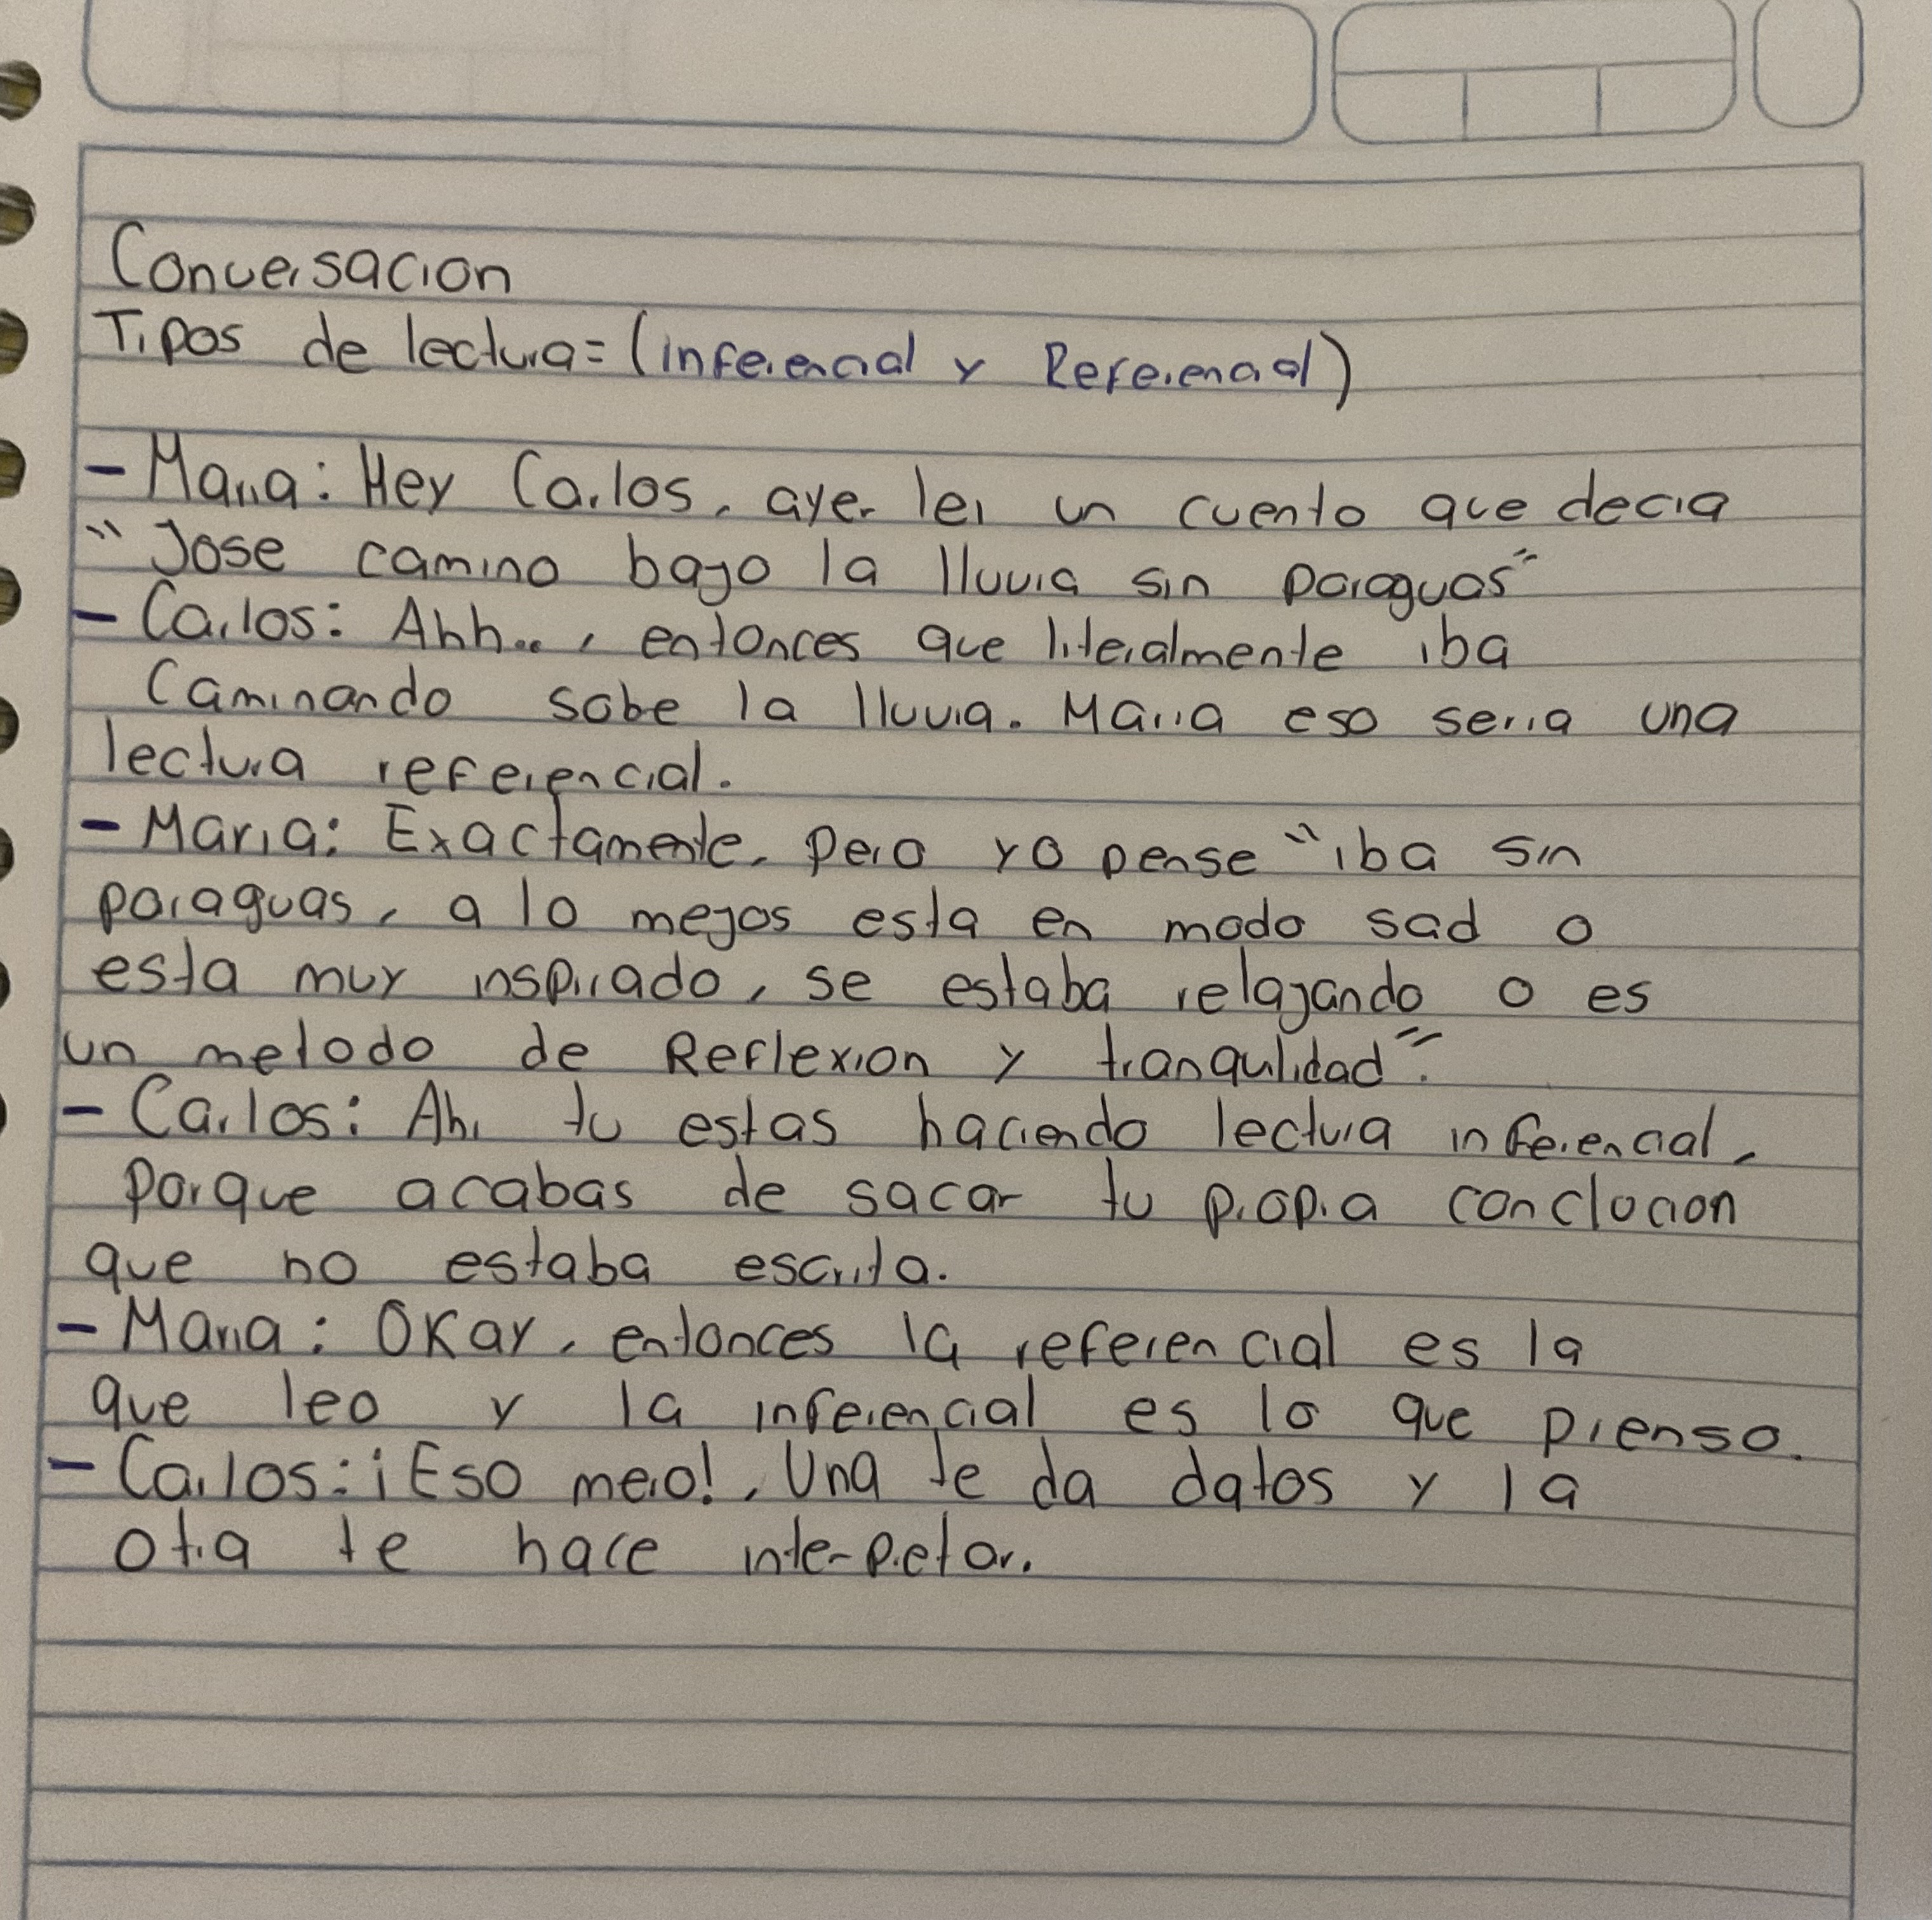 Conversacion
Tipos de lectura= (inferencial y Referencial)
- Maria: Hey Carlos, ayer lei un cuento que decia
" Jose camino bajo la lluvia sin paraguas"
- Carlos: Ahh.., entonces que literalmente iba
Caminando sobe la lluvia. Maria eso seria una
lectura referencial.
- Maria: Exactamente, pero yo pense "iba sin
paraguas, a lo mejos esta en modo sad o
esta muy inspirado, se estaba relajando o es
un metodo de Reflexion y tranqulidad".
- Carlos: Ahi tu estas haciendo lectura inferencial,
porque acabas de sacar tu propia conclocion
que no estaba escrita.
- Maria: Okay, entonces la referencial es la
que leo y la inferencial es lo que pienso.
- Carlos: ¡Eso mero!, Una te da datos y la
otra te hace inter-pretar.